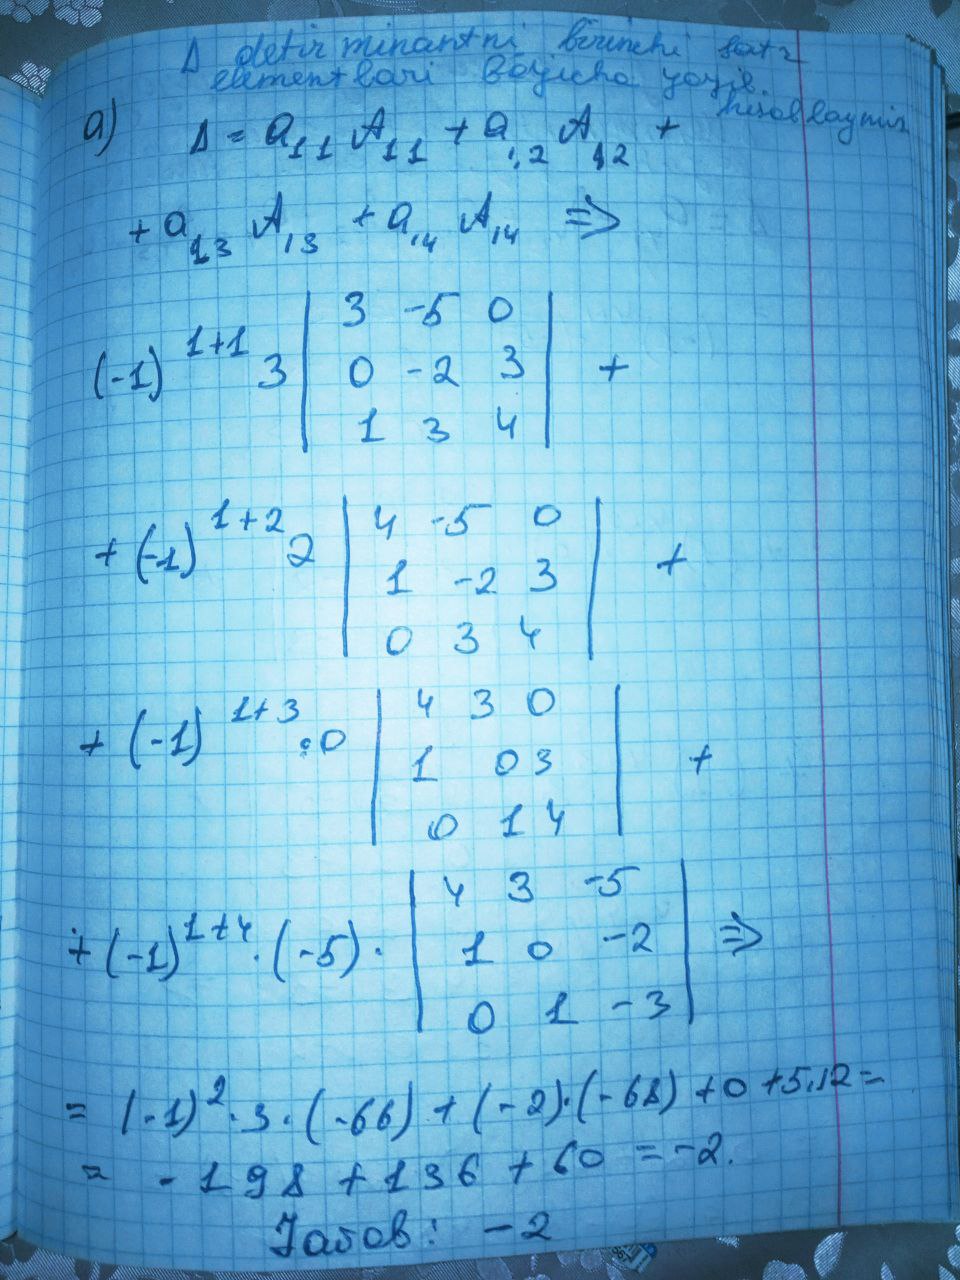 Δ detirminantni birinchi satr
elementlari boyicha yozib
hisoblaymiz
a) Δ = a₁₁ A₁₁ + a₁₂ A₁₂ +
+ a₁₃ A₁₃ + a₁₄ A₁₄ ⇒
(-1)¹⁺¹ 3 | 3 -5 0 | +
| 0 -2 3 |
| 1 3 4 |
+ (-1)¹⁺² 2 | 4 -5 0 | +
| 1 -2 3 |
| 0 3 4 |
+ (-1)¹⁺³ · 0 | 4 3 0 | +
| 1 0 3 |
| 0 1 4 |
+ (-1)¹⁺⁴ · (-5) · | 4 3 -5 | ⇒
| 1 0 -2 |
| 0 1 -3 |
= (-1)² · 3 · (-66) + (-2) · (-68) + 0 + 5.12 =
= -198 + 136 + 60 = -2.
Javob: -2